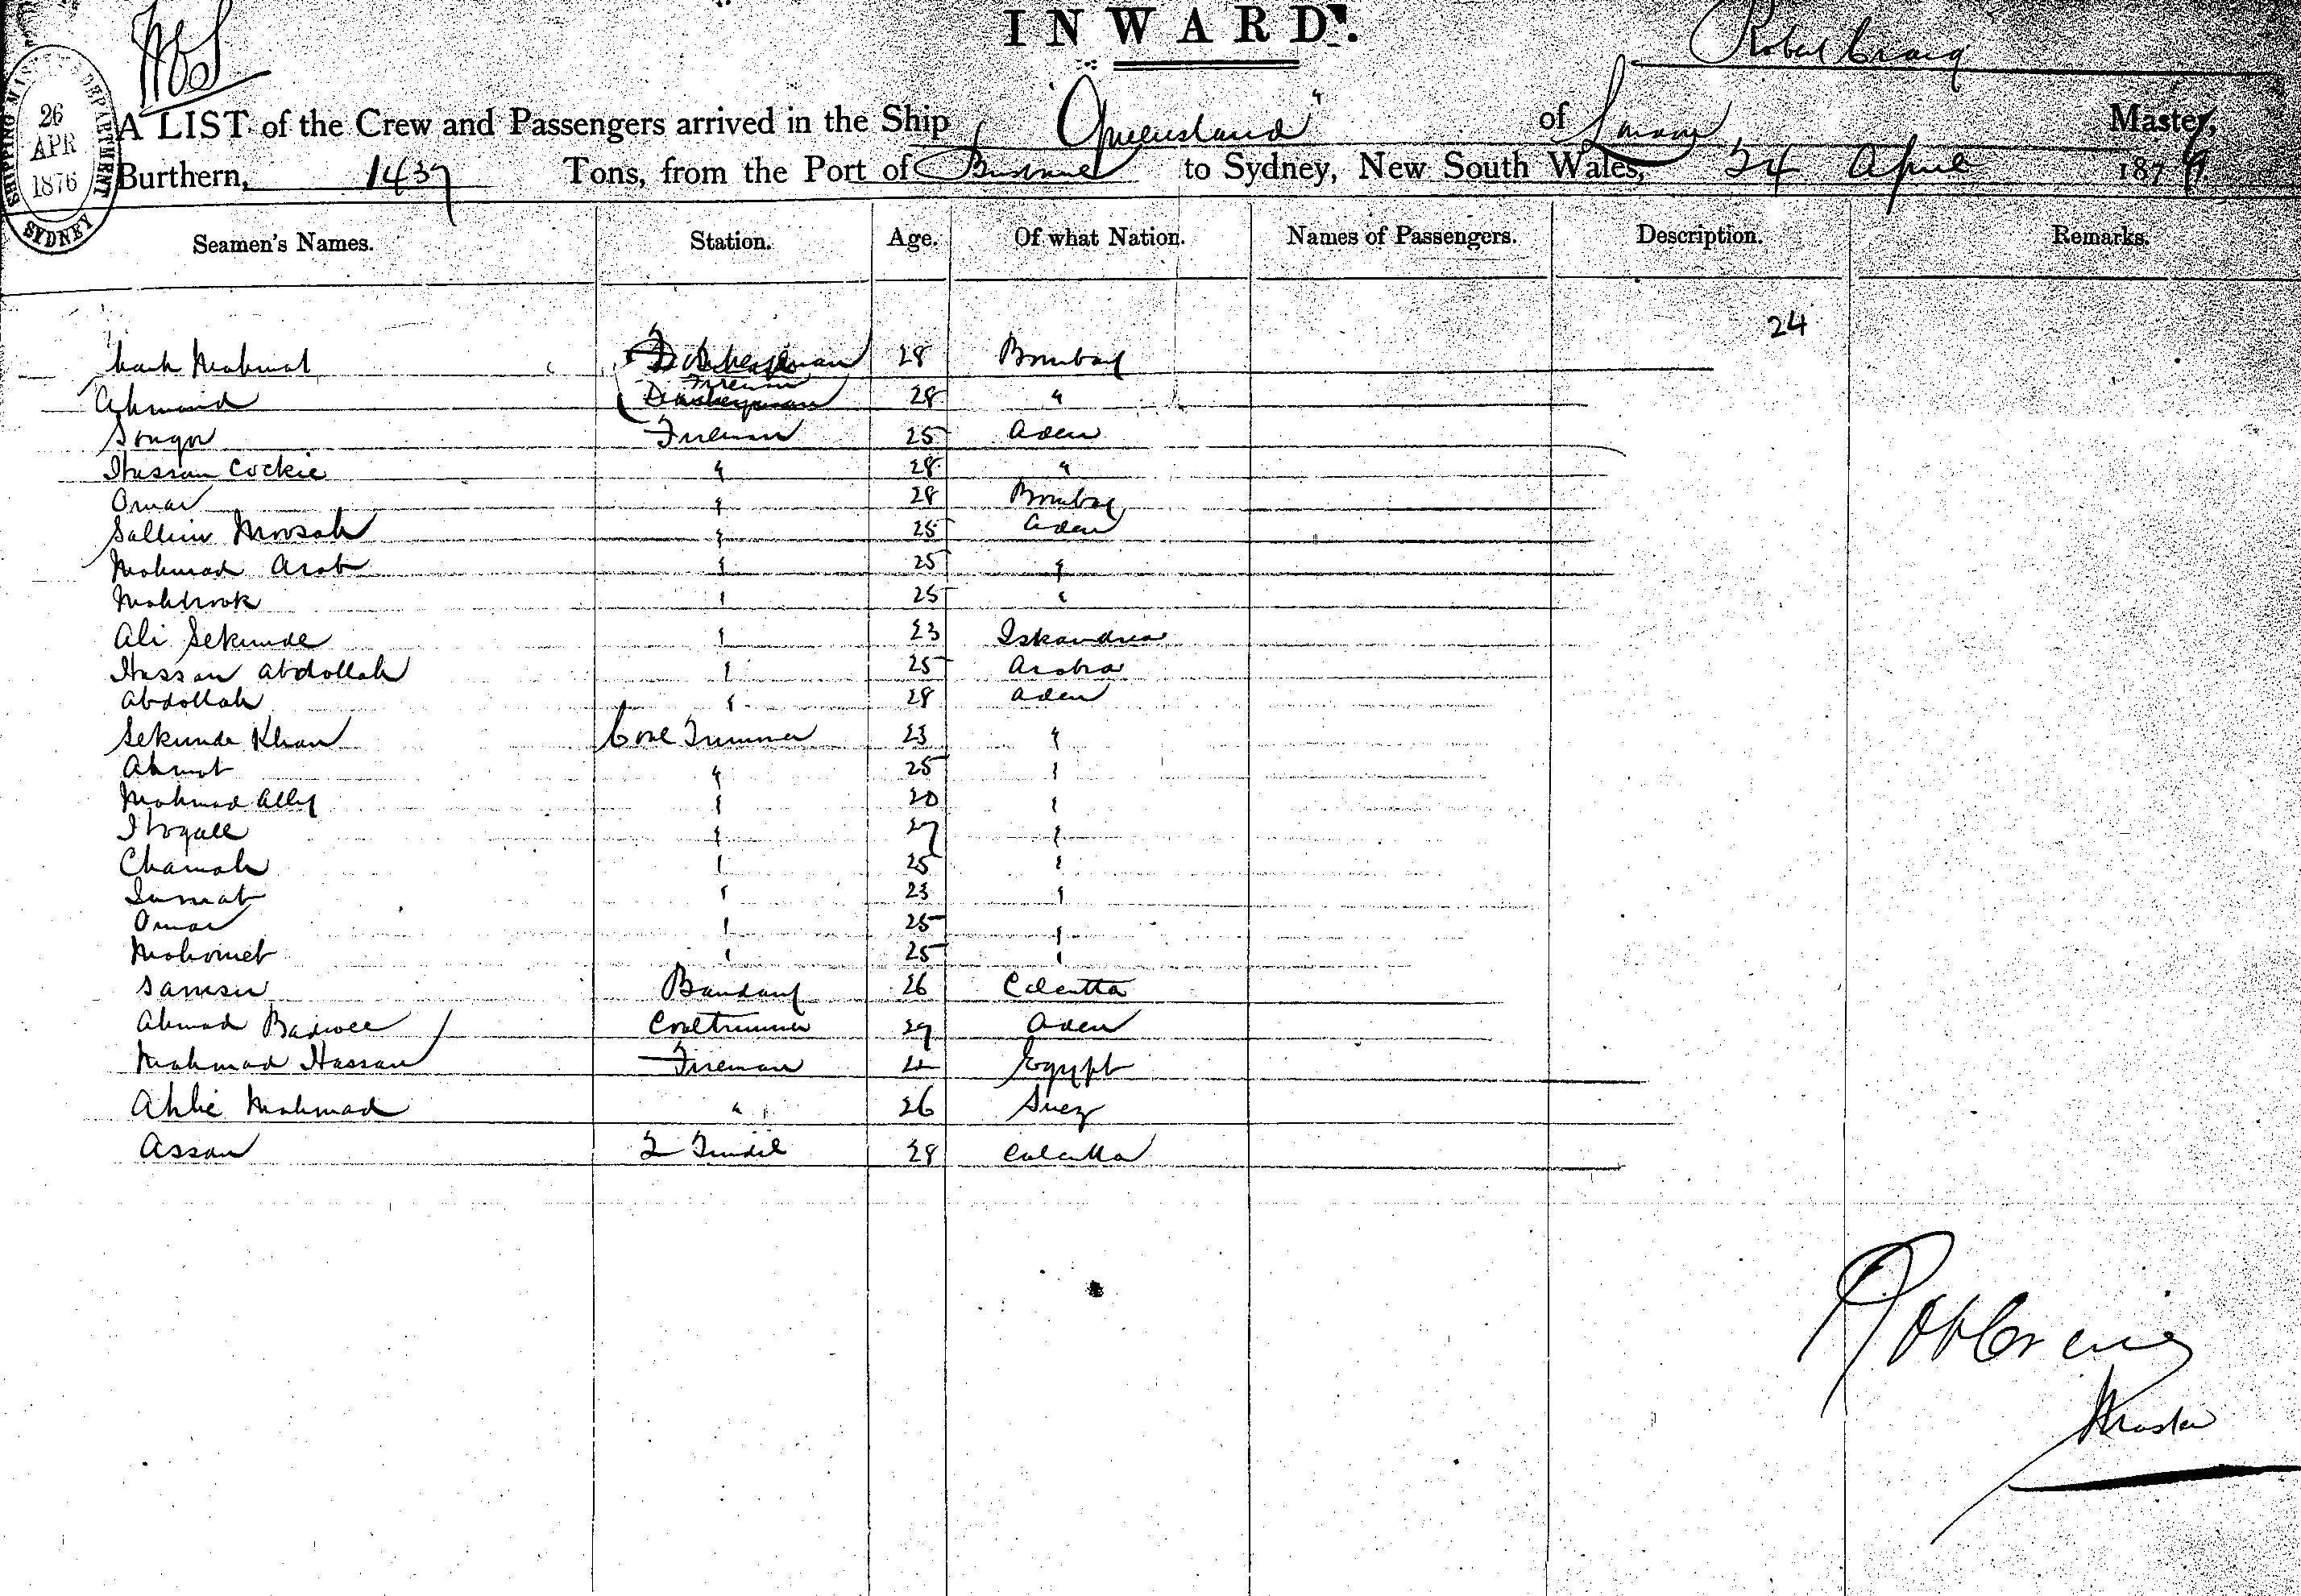 INWARD.
Robert Craig
SHIPPING MASTER'S DEPARTMENT
26
APR
1876
SYDNEY
A LIST of the Crew and Passengers arrived in the Ship "Queensland" of London Master,
Burthern, 1437 Tons, from the Port of Brisbane to Sydney, New South Wales, 24 April 187
Seamen's Names. Station. Age. Of what Nation. Names of Passengers. Description. Remarks.
24
Mahmat 28 Bombay
Ahmaid Fireman 28 "
Songor Fireman 25 Aden
Hassan Cockie " 28 "
Omar " 28 Bombay
Sallim Moosah " 25 Aden
Mahmad Arab " 25 "
Mahbrook " 25 "
Ali Sekunde " 23 Iskandria
Hassan Abdollah " 25 Araba
Abdollah " 28 Aden
Sekunde Khan Coal Trimmer 23 "
Ahmat " 25 "
Mahmad Ally " 20 "
" 27 "
Chamah " 25 "
" 23 "
Omar " 25 "
Mahomet " 25 "
Samsu Bandary 26 Calcutta
Ahmad Badwee Coaltrimmer 29 Aden
Mahmad Hassan Fireman Egypt
Ahlie Mahmad " 26 Suez
Assan 2 Tindel 28 Calcutta
Robt Craig
Master